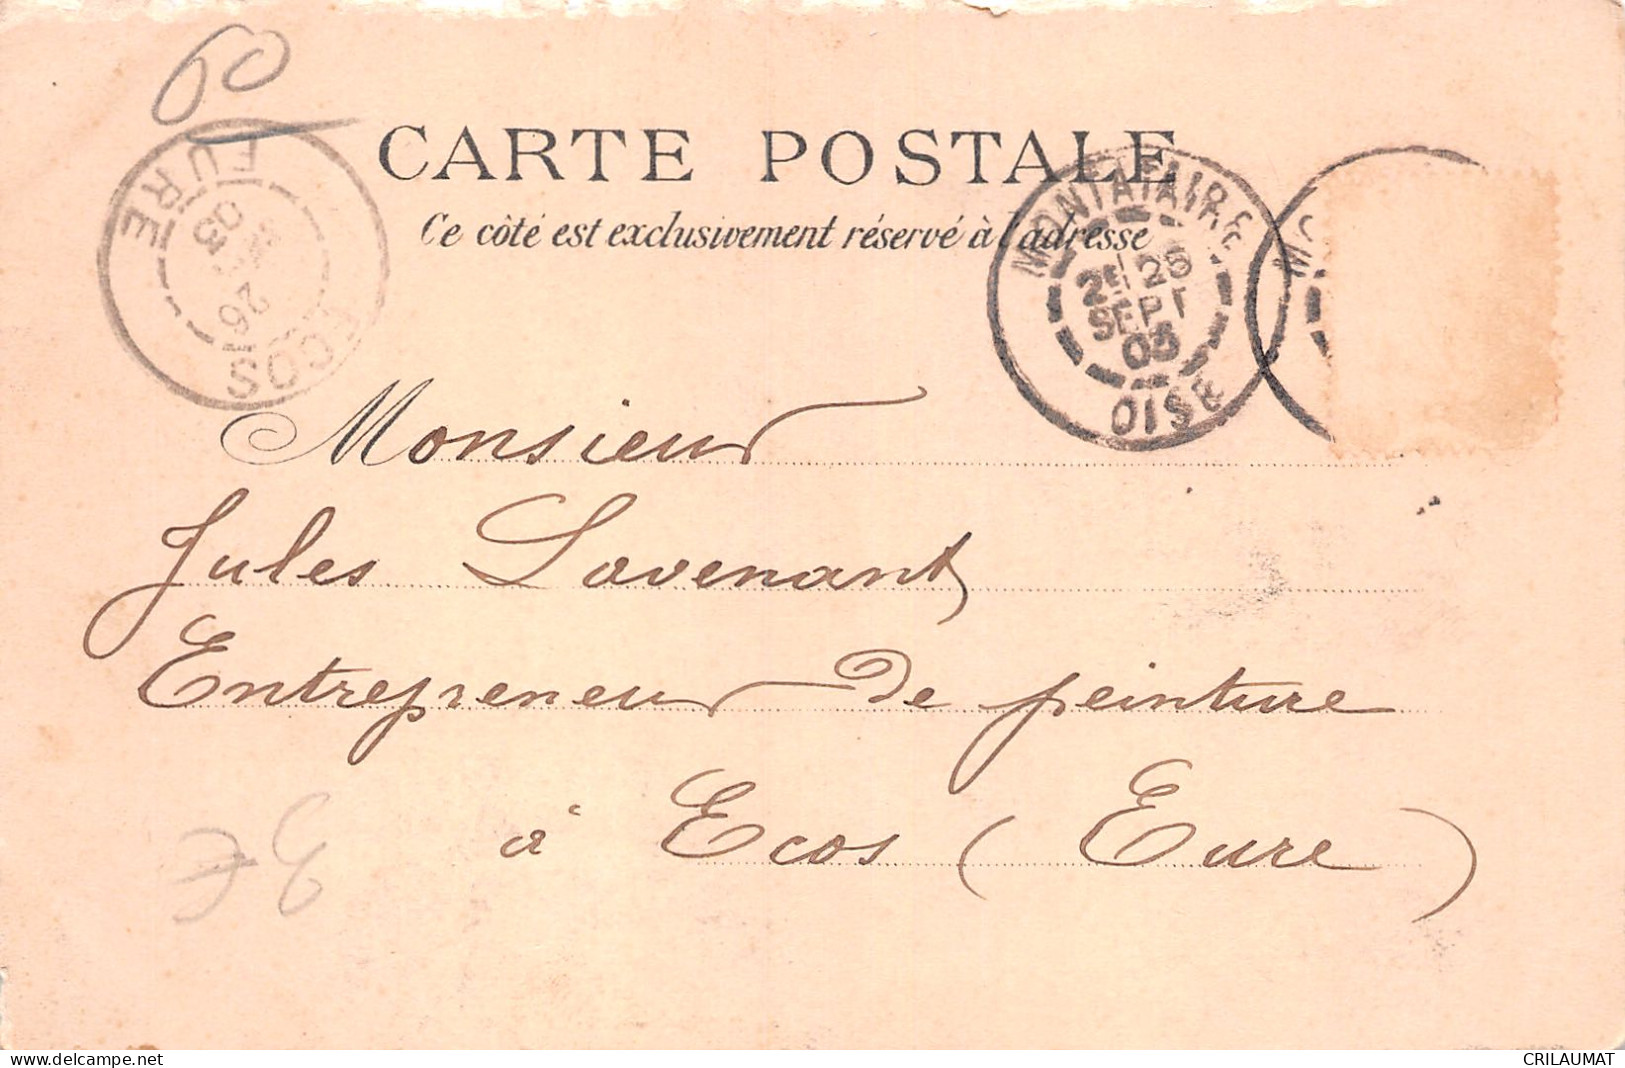 60
CARTE POSTALE
Ce côté est exclusivement réservé à l'adresse
EURE
26
03
ECOS
MONTATAIRE
2E 25
SEPT
03
OISE
MO
Monsieur
Jules Lavenant
Entrepreneur de peinture
à Ecos (Eure)
3€
CRILAUMAT